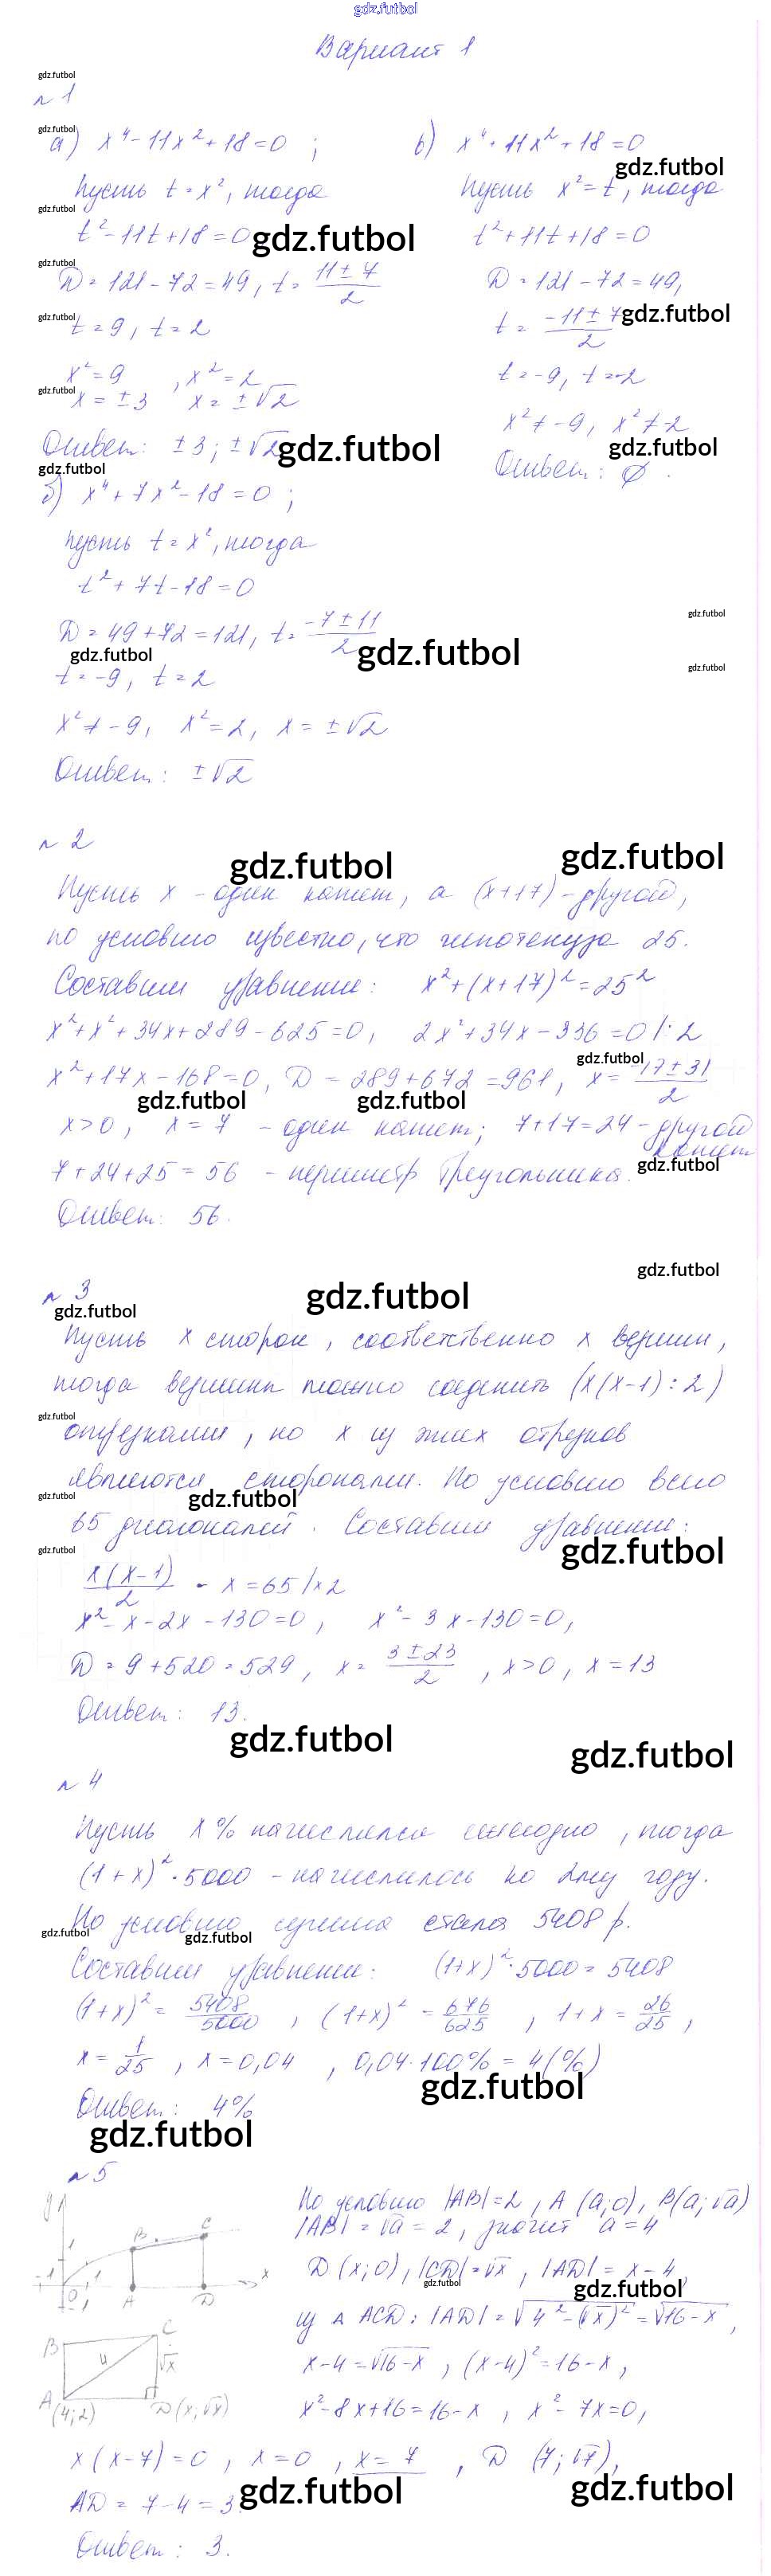 gdz.futbol
Вариант 1
gdz.futbol
№1
gdz.futbol
а) x⁴-11x²+18=0 ;
Пусть t=x², тогда
gdz.futbol
t²-11t+18=0
gdz.futbol
gdz.futbol
D=121-72=49, t= (11±7)/2
gdz.futbol
t=9, t=2
x²=9 , x²=2
gdz.futbol
x=±3 x=±√2
Ответ: ±3; ±√2
gdz.futbol
gdz.futbol
в) x⁴+11x²+18=0
gdz.futbol
Пусть x²=t, тогда
t²+11t+18=0
D=121-72=49,
t= (-11±7)/2
gdz.futbol
t=-9, t=-2
x²≠-9, x²≠-2
gdz.futbol
Ответ: ∅.
б) x⁴+7x²-18=0 ;
Пусть t=x², тогда
t²+7t-18=0
gdz.futbol
D=49+72=121, t= (-7±11)/2
gdz.futbol
gdz.futbol
gdz.futbol
t=-9, t=2
x²≠-9, x²=2, x=±√2
Ответ: ±√2
№2
gdz.futbol
gdz.futbol
Пусть x - один катет, а (x+17)-другой,
по условию известно, что гипотенуза 25.
Составим уравнение: x²+(x+17)²=25²
x²+x²+34x+289-625=0, 2x²+34x-336=0 |:2
gdz.futbol
x²+17x-168=0, D=289+672=961, x= (-17±31)/2
gdz.futbol
gdz.futbol
x>0, x=7 - один катет; 7+17=24-другой
катет
7+24+25=56 - периметр треугольника.
gdz.futbol
Ответ: 56.
gdz.futbol
№3
gdz.futbol
gdz.futbol
Пусть x сторон, соответственно x вершин,
тогда вершины можно соединить (x(x-1):2)
gdz.futbol
отрезками, но x из этих отрезков
являются сторонами. По условию всего
gdz.futbol
gdz.futbol
65 диагоналей. Составим уравнение:
gdz.futbol
gdz.futbol
x(x-1)/2 - x=65 |×2
x²-x-2x-130=0, x²-3x-130=0,
D=9+520=529, x= (3±23)/2, x>0, x=13
Ответ: 13.
gdz.futbol
gdz.futbol
№4
Пусть x% начислялся ежегодно, тогда
(1+x)²·5000 - начислилось ко 2му году.
По условию сумма стала 5408 р.
gdz.futbol
gdz.futbol
Составим уравнение: (1+x)²·5000=5408
(1+x)²= 5408/5000, (1+x)²= 676/625, 1+x= 26/25,
x= 1/25, x=0,04, 0,04·100%=4(%)
gdz.futbol
Ответ: 4%
gdz.futbol
№5
y
1
B
C
-1
0
1
A
D
x
По условию |AB|=2, A(a;0), B(a;√a)
|AB|=√a=2, значит a=4
D(x;0), |CD|=√x, |AD|=x-4,
gdz.futbol
gdz.futbol
из △ACD: |AD|=√(4²-(√x)²)=√(16-x),
B
C
4
√x
A
(4;2)
D(x;√x)
x-4=√(16-x), (x-4)²=16-x,
x²-8x+16=16-x, x²-7x=0,
x(x-7)=0, x=0, x=7, D (7;√7),
gdz.futbol
gdz.futbol
AD=7-4=3.
Ответ: 3.